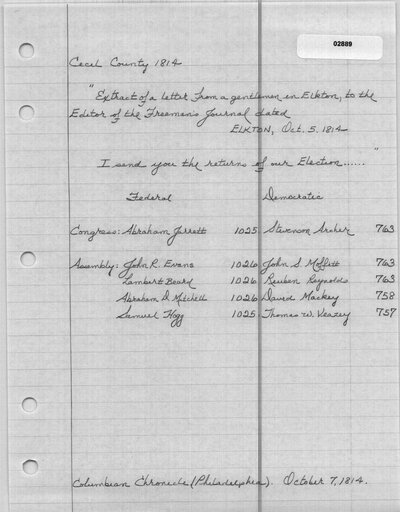 02889
Cecil County 1814
"Extract of a letter from a gentleman in Elkton, to the
Editor of the Freeman's Journal dated
ELKTON, Oct. 5. 1814
I send you the returns of our Election......"
Federal Democratic
Congress: Abraham Jarrett 1025 Stevenson Archer 763
Assembly: John R. Evans 1026 John S. Moffett 763
Lambert Beard 1026 Reuben Reynolds 763
Abraham D. Mitchell 1026 David Mackey 758
Samuel Hogg 1025 Thomas W. Veazey 757
Columbian Chronicle (Philadelphia). October 7, 1814.